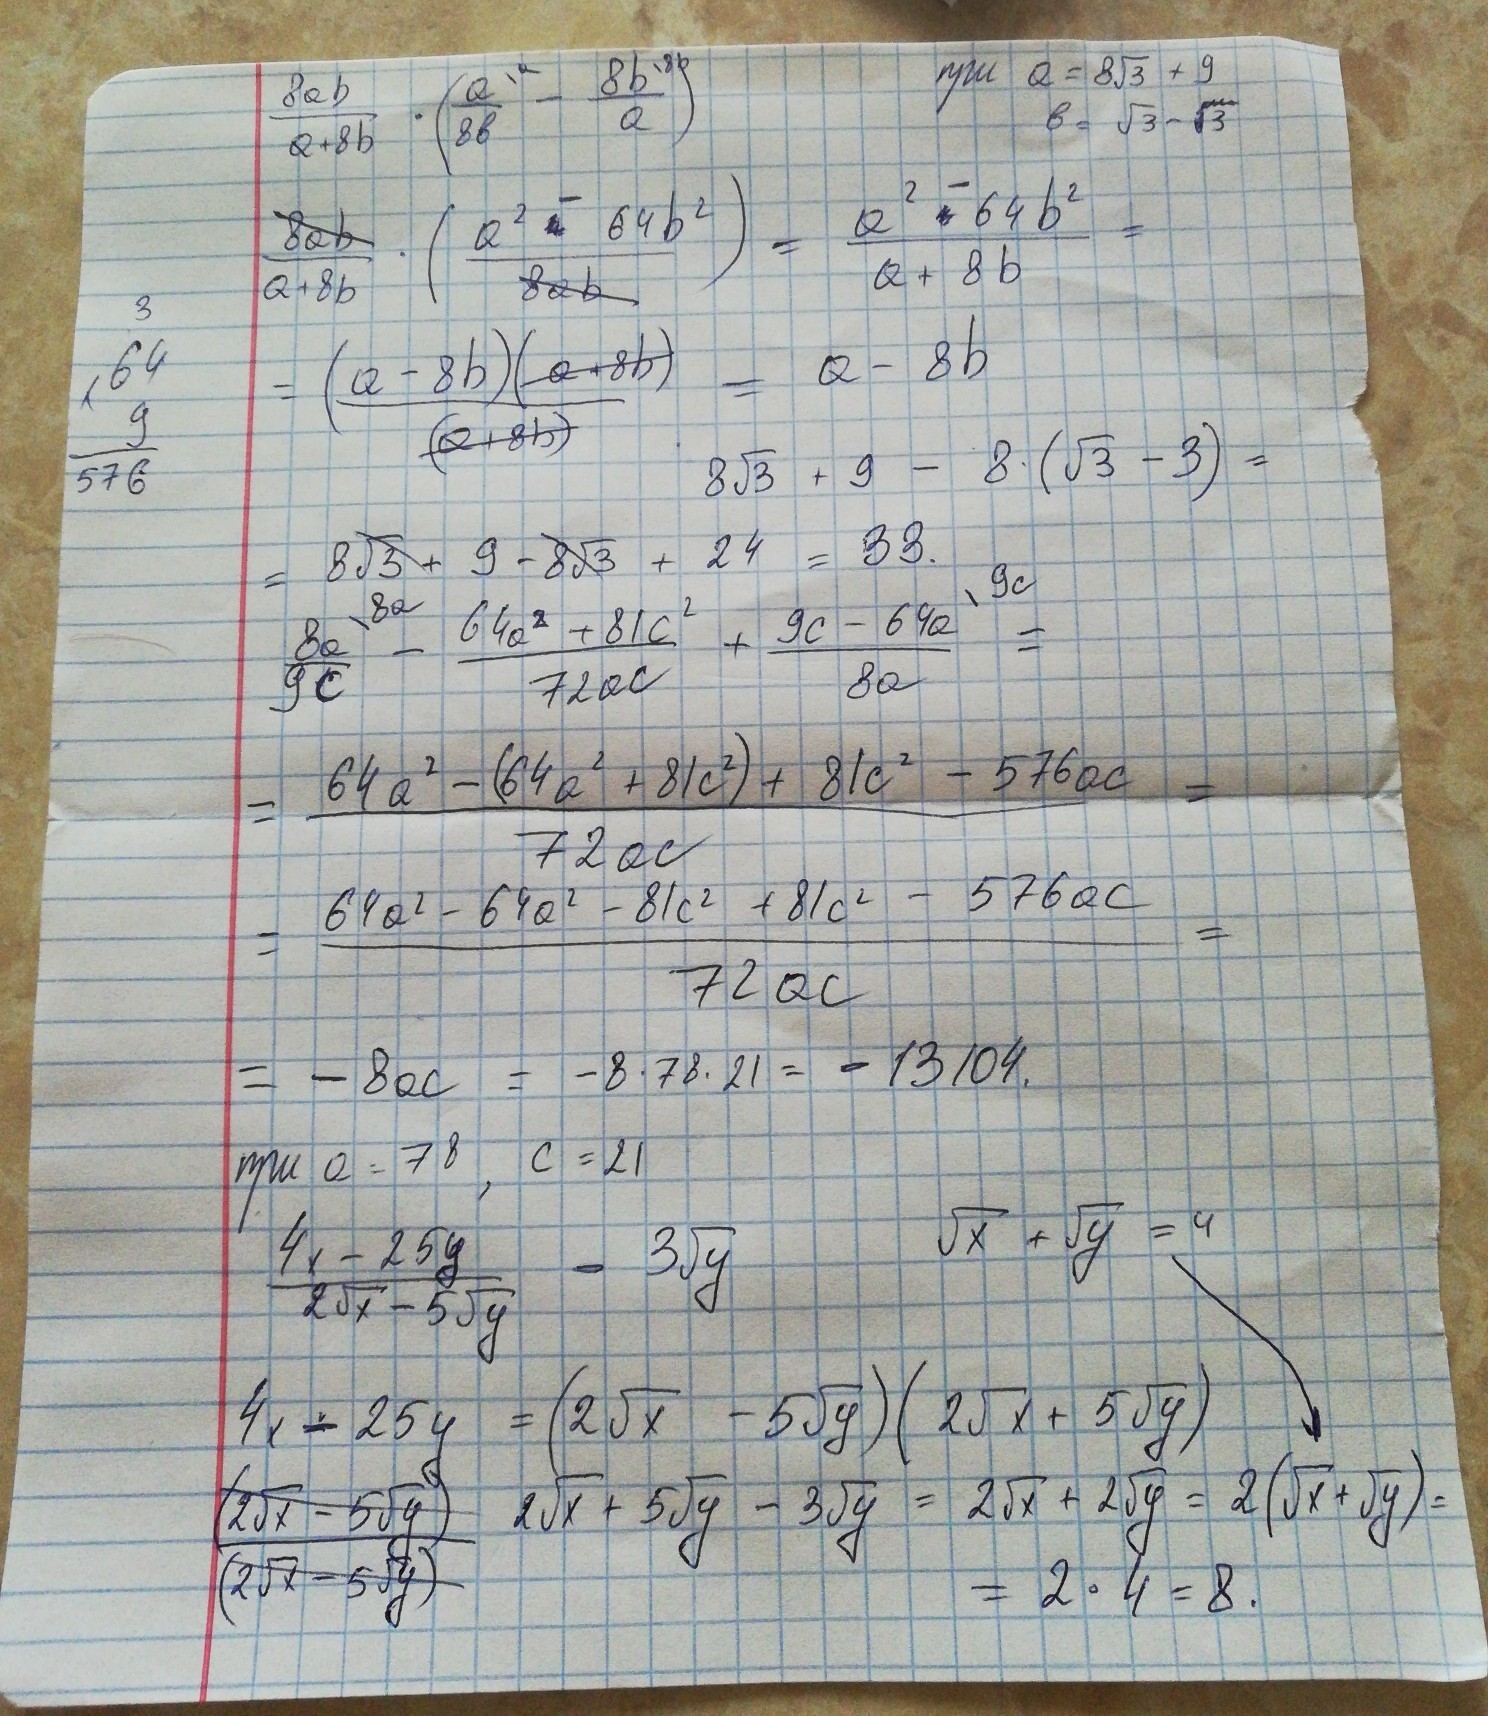 8ab/(a+8b) · (a/8b \a − 8b/a \8b) при a = 8√3 + 9
b = √3 − √3
8ab/(a+8b) · ((a² − 64b²)/8ab) = (a² − 64b²)/(a + 8b) =
3
×64
9
576
= (a − 8b)(a + 8b)/(a + 8b) = a − 8b
8√3 + 9 − 8·(√3 − 3) =
= 8√3 + 9 − 8√3 + 24 = 33.
8a/9c \8a − (64a² + 81c²)/72ac + (9c − 64a)/8a \9c =
= (64a² − (64a² + 81c²) + 81c² − 576ac)/72ac =
= (64a² − 64a² − 81c² + 81c² − 576ac)/72ac =
= − 8ac = −8·78·21 = − 13104.
при a = 78, c = 21
(4x − 25y)/(2√x − 5√y) − 3√y √x + √y = 4
4x − 25y = (2√x − 5√y)(2√x + 5√y)
(2√x − 5√y)/(2√x − 5√y) 2√x + 5√y − 3√y = 2√x + 2√y = 2(√x + √y) =
= 2 · 4 = 8.